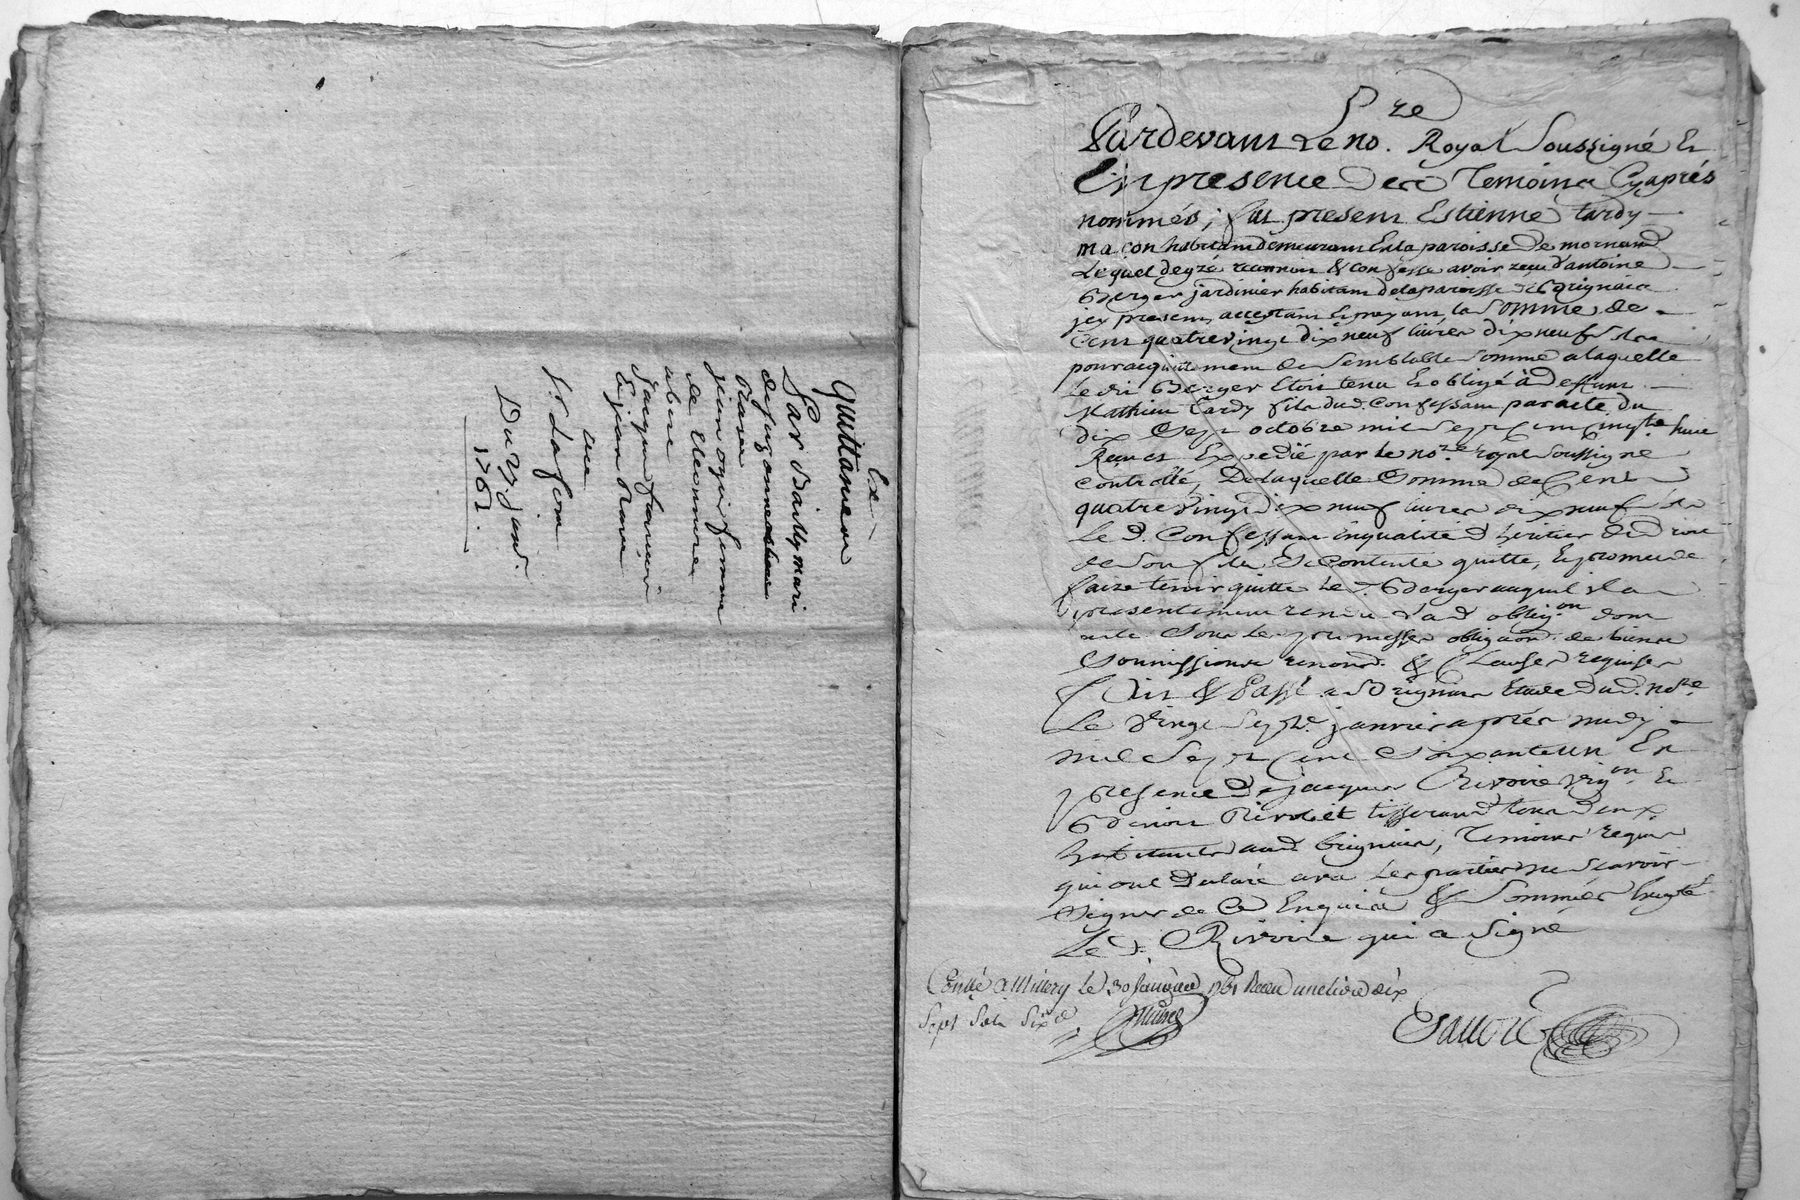 Ex
Quittance
Par Bailly mari
Jean ogier femme
de Eleonnore
Jacques fournier
Sr. Lafon
Du 27 janv.
1761.
Pardevant Le no. Royal Soussigné Et
En presence des Temoins Cyaprés
nommés, fut present Estienne tardy
maçon habitant demeurant En la paroisse de mornand
Lequel degré reconnoit & confesse avoir reçu d'antoine
Berger jardinier habitant de la paroisse de Brignais
jcy present, acceptant Et payant la Somme de
Cent quatrevingt dixneuf livres dixneuf sols
pour acquittement de Semblable Somme a laquelle
Le dit Berger Etoit tenu Et obligé à Deffunt
Mathieu tardy fils dud. Confessant par acte du
dix Sept octobre mil Sept Cent cinqte. huit
Recu Et Expedié par le nore. royal Soussigné
Controllé, De laquelle Somme de Cent
quatre Vingt Dix neuf livres dixneuf sols
Le d. Confessant En qualité d'heritier de droit
de Son fils Se Contente quitte, Et promet de
faire tenir quitte Le d. Berger auquel il a
presentement rendu Lad. obligon. dont
acte Sous Les promesses obligaons. de biens
Soumissions renond. & Clauses requises
Fait & Passé a Brignais Etude dud. nore.
Le Vingt Septe. janvier aprés midy
mil Sept Cent Soixante un En
presence de jacques Rivoire vigon. Et
Benoit Rivollet tisserand tous deux
habitants aud. brignais, Temoins requis
qui ont Declaré avec Les parties ne Scavoir
Signer de Ce Enquis & Sommés Excepté
Le d. Rivoire qui a Signé
Conllé a Millery le 30 Janvier 1761 Receu une livre dix
Sept Sols Six d